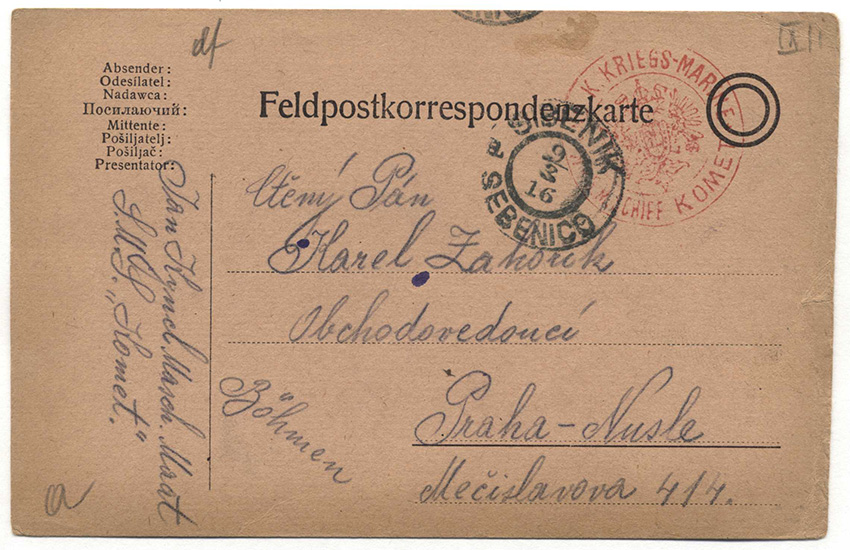 df
IXII
Absender:
Odesílatel:
Nadawca:
Посилаючий:
Mittente:
Pošiljatelj:
Pošiljač:
Presentator:
Feldpostkorrespondenzkarte
K. KRIEGS-MARINE
SCHIFF KOMET
ŠIBENIK
9
3
16
SEBENICO
Ctěný Pán
Karel Zahořík
Obchodovedoucí
Praha-Nusle
Mečislavova 414.
Böhmen
Jan Kyncl Masch. Maat
S.M.S. „Komet."
a